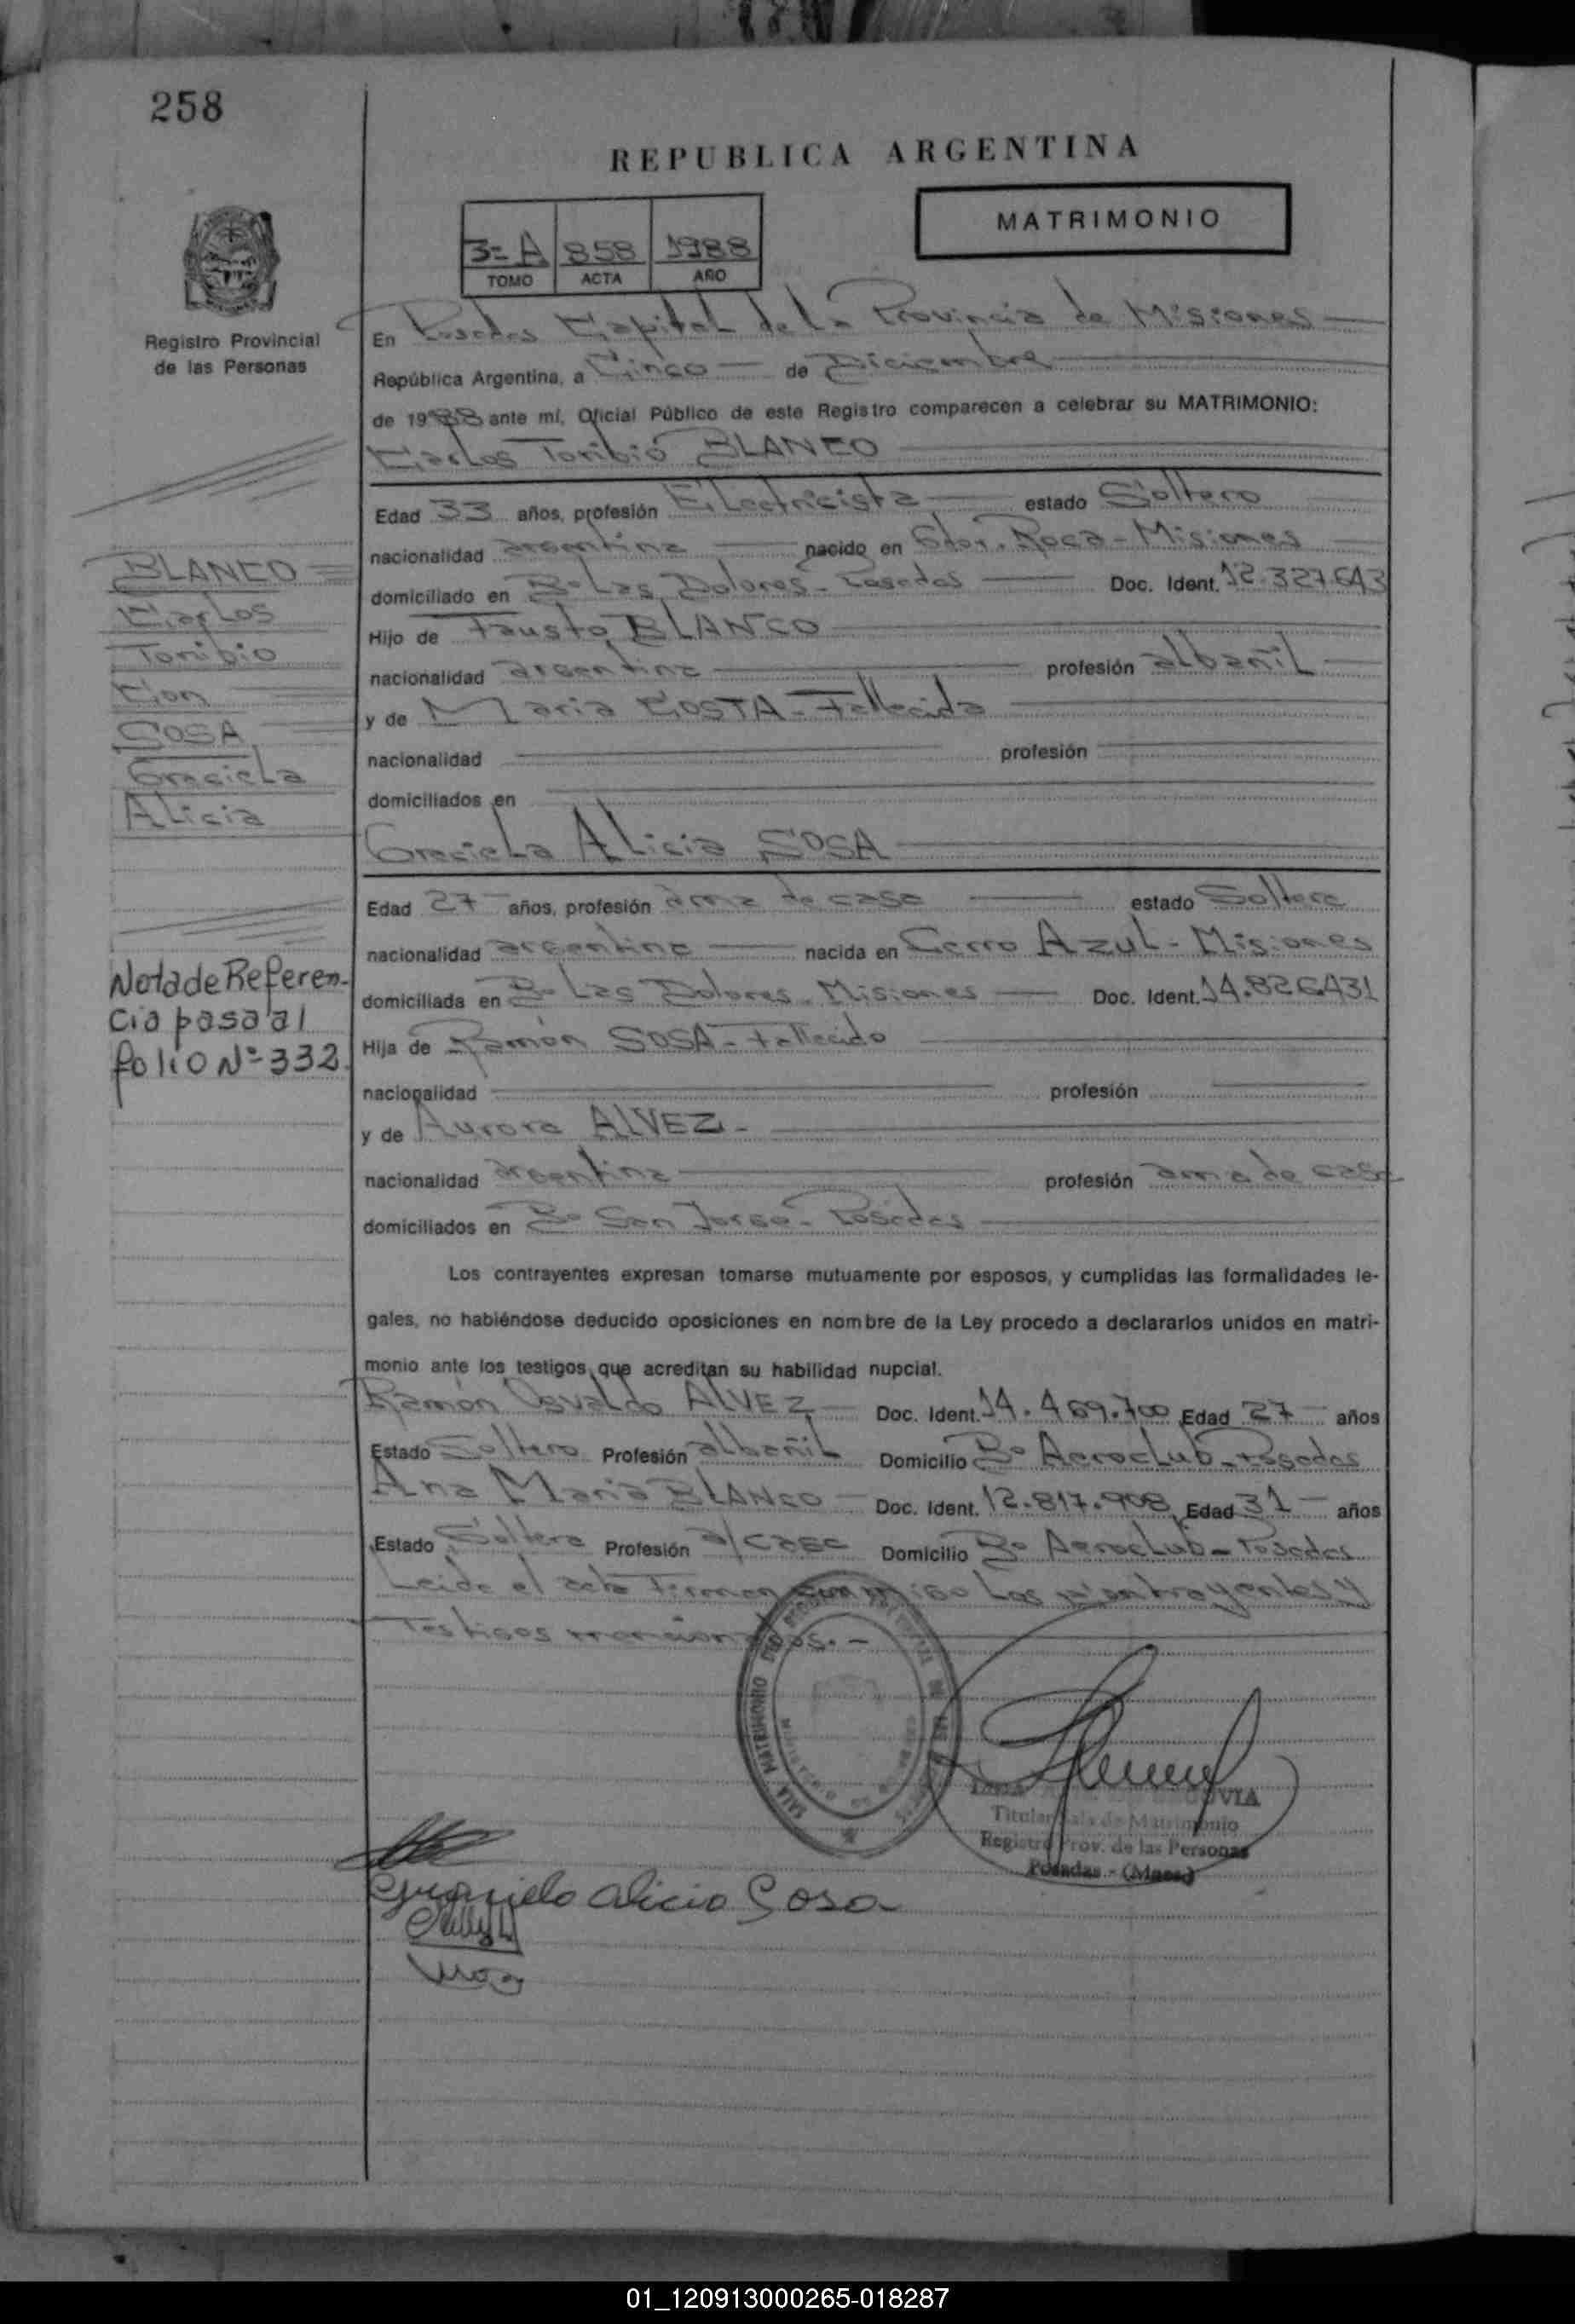 258
REPUBLICA ARGENTINA
MATRIMONIO
3=A 858 1988
TOMO ACTA AÑO
Registro Provincial
de las Personas
En Posadas Capital de la Provincia de Misiones
República Argentina, a Cinco de Diciembre
de 1988 ante mí, Oficial Público de este Registro comparecen a celebrar su MATRIMONIO:
Carlos Toribio BLANCO
Edad 33 años, profesión Electricista estado Soltero
nacionalidad argentina nacido en Gdor. Roca - Misiones
domiciliado en Bº Las Dolores - Posadas Doc. Ident. 12.327.643
Hijo de Fausto BLANCO
nacionalidad argentina profesión albañil
y de Maria COSTA - Fallecida
nacionalidad profesión
domiciliados en
Graciela Alicia SOSA
Edad 27 años, profesión ama de casa estado Soltera
nacionalidad argentina nacida en Cerro Azul - Misiones
domiciliada en Bº Las Dolores - Misiones Doc. Ident. 14.826.431
Hija de Ramón SOSA - Fallecido
nacionalidad profesión
y de Aurora ALVEZ -
nacionalidad argentina profesión ama de casa
domiciliados en Bº San Jorge - Posadas
Los contrayentes expresan tomarse mutuamente por esposos, y cumplidas las formalidades le-
gales, no habiéndose deducido oposiciones en nombre de la Ley procedo a declararlos unidos en matri-
monio ante los testigos que acreditan su habilidad nupcial.
Ramón Osvaldo ALVEZ Doc. Ident. 14.469.700 Edad 27 años
Estado Soltero Profesión albañil Domicilio Bº Aeroclub - Posadas
Ana Maria BLANCO Doc. Ident. 12.817.908 Edad 31 años
Estado Soltera Profesión a/casa Domicilio Bº Aeroclub - Posadas
Leida el acta firman conmigo Los contrayentes y
Testigos mencionados. -
BLANCO
Carlos
Toribio
Con
SOSA
Graciela
Alicia
Nota de Referen-
cia pasa al
folio Nº 332
SALA MATRIMONIO
SEGOVIA
Titular Sala de Matrimonio
Registro Prov. de las Personas
Posadas - (Mnes)
Graciela Alicia Sosa
01_120913000265-018287